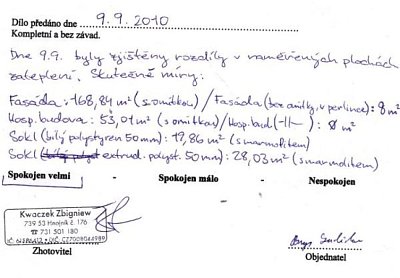 Dílo předáno dne 9.9.2010
Kompletní a bez závad.
Dne 9.9. byly zjištěny rozdíly v naměřených plochách
zateplení. Skutečné míry:
Fasáda: 168,84 m² (s omítkou) / Fasáda (bez omítky, v perlince): 8 m²
Hosp. budova: 53,01 m² (s omítkou) / Hosp. bud (-11-): 8 m²
Sokl (bílý polystyren 50mm): 19,86 m² (s marmolitem)
Sokl (bílý polyst extrud. polyst. 50mm): 28,03 m² (s marmolitem)
Spokojen velmi - Spokojen málo - Nespokojen
Kwaczek Zbigniew
739 53 Hnojník č. 176
☎ 731 501 180
Zhotovitel
Objednatel